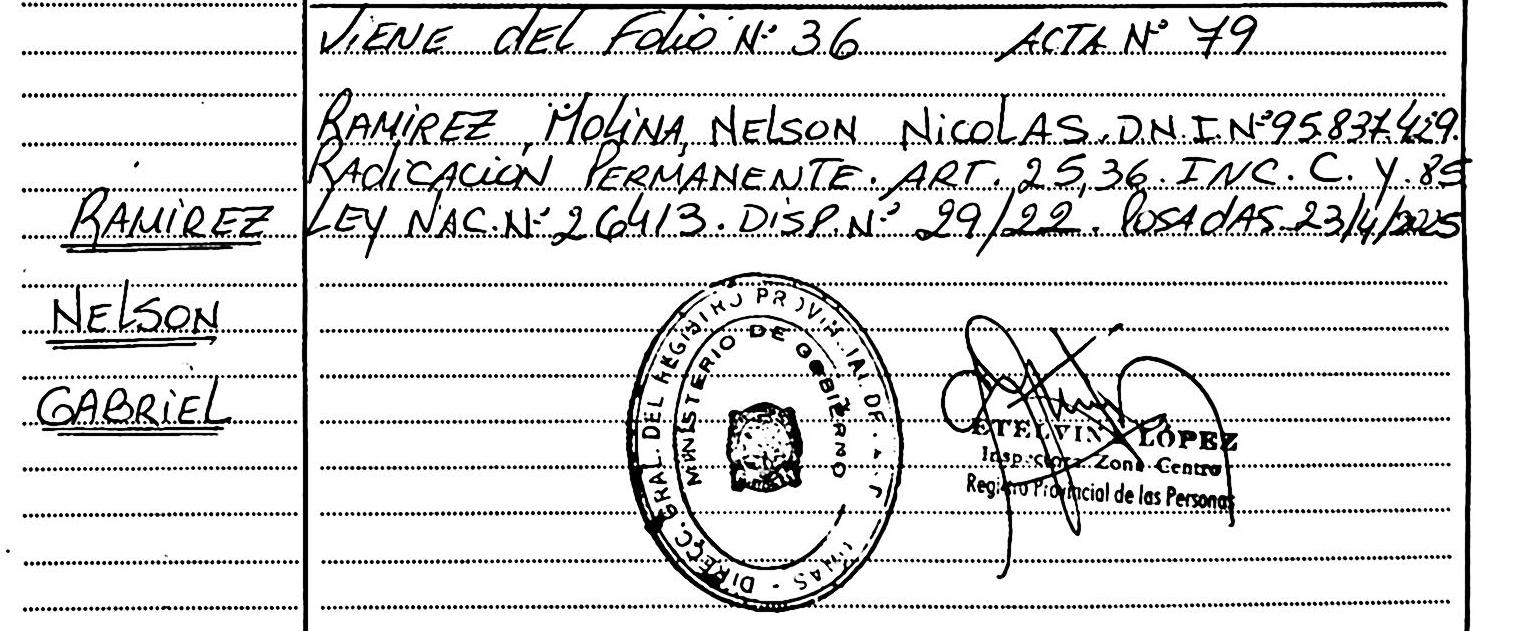 VIENE del Folio Nº 36 ACTA Nº 79
RAMIREZ, MOLINA, NELSON NICOLAS. D.N.I.Nº95.837.429.
RADICACIÓN PERMANENTE. ART. 25,36. INC. C. Y. 85
LEY NAC.Nº 26413. DISP.Nº 29/22. POSADAS.23/4/2025
RAMIREZ
NELSON
GABRIEL
DIRECC. GRAL. DEL REGISTRO PROVINCIAL DE
MINISTERIO DE GOBIERNO
ETELVINA LÓPEZ
Inspectora Zona Centro
Registro Provincial de las Personas